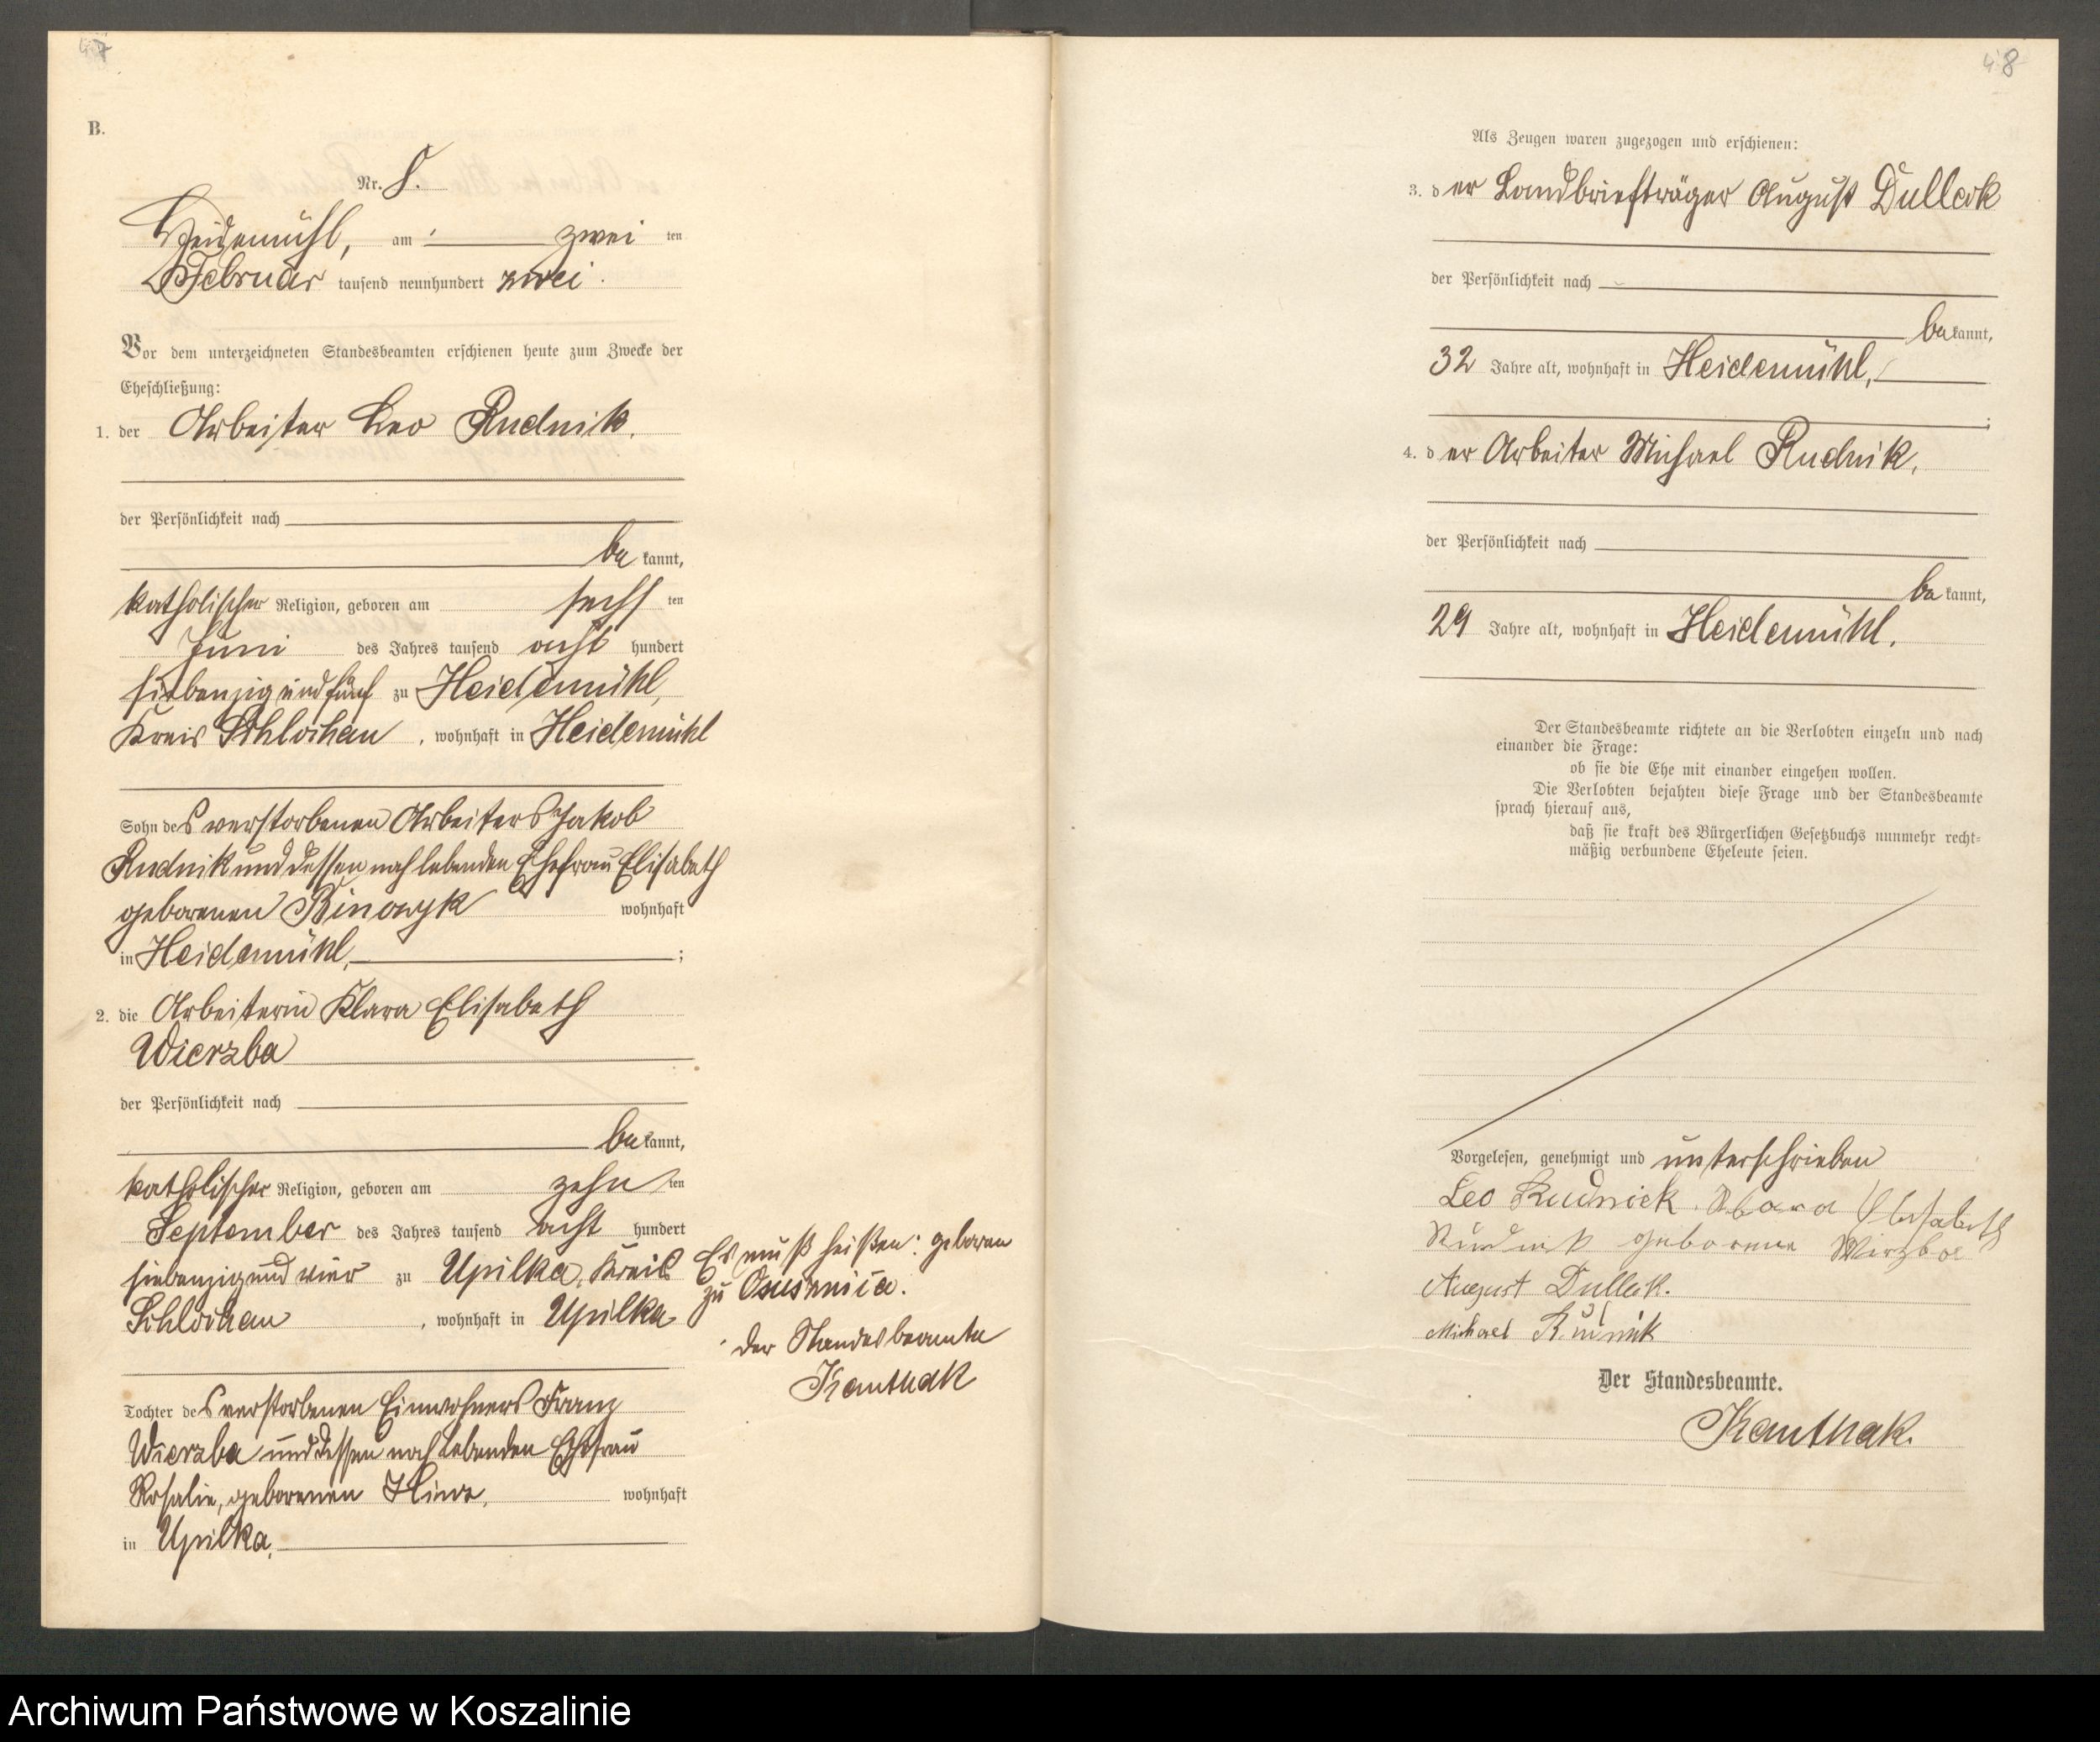 47
B.
Nr. 8.
Heidemühl, am zwei ten
Februar tausend neunhundert zwei.
Vor dem unterzeichneten Standesbeamten erschienen heute zum Zwecke der
Eheschließung:
1. der Arbeiter Leo Rudnik,
der Persönlichkeit nach
be kannt,
katholischer Religion, geboren am sechs ten
Juni des Jahres tausend acht hundert
siebenzig und fünf zu Heidemühl,
Kreis Schlochau, wohnhaft in Heidemühl
Sohn des verstorbenen Arbeiters Jakob
Rudnik und dessen noch lebenden Ehefrau Elisabeth
geborenen wohnhaft
in Heidemühl, ;
2. die Arbeiterin Klara Elisabeth
Wierzba
der Persönlichkeit nach
be kannt,
katholischer Religion, geboren am zehn ten
September des Jahres tausend acht hundert
siebenzig und vier zu Upilka, Kreis
Schlochau, wohnhaft in Upilka
Tochter des verstorbenen Einwohners Franz
Wierzba und dessen noch lebenden Ehefrau
Rosalie, geborenen wohnhaft
in Upilka,
Es muß heißen: geboren
zu Ossusznica.
Der Standesbeamte
Kanthak
48
Als Zeugen waren zugezogen und erschienen:
3. der Landbriefträger August Dulleck
der Persönlichkeit nach
be kannt,
32 Jahre alt, wohnhaft in Heidemühl,
;
4. der Arbeiter Michael Rudnik,
der Persönlichkeit nach
be kannt,
29 Jahre alt, wohnhaft in Heidemühl.
Der Standesbeamte richtete an die Verlobten einzeln und nach
einander die Frage:
ob sie die Ehe mit einander eingehen wollen.
Die Verlobten bejahten diese Frage und der Standesbeamte
sprach hierauf aus,
daß sie kraft des Bürgerlichen Gesetzbuchs nunmehr recht-
mäßig verbundene Eheleute seien.
Vorgelesen, genehmigt und unterschrieben
Leo Rudnick. Klara Elisabeth
Rudnik geborene Wirzba
August Dulleck.
Michael Rudnik
Der Standesbeamte.
Kanthak.
Archiwum Państwowe w Koszalinie